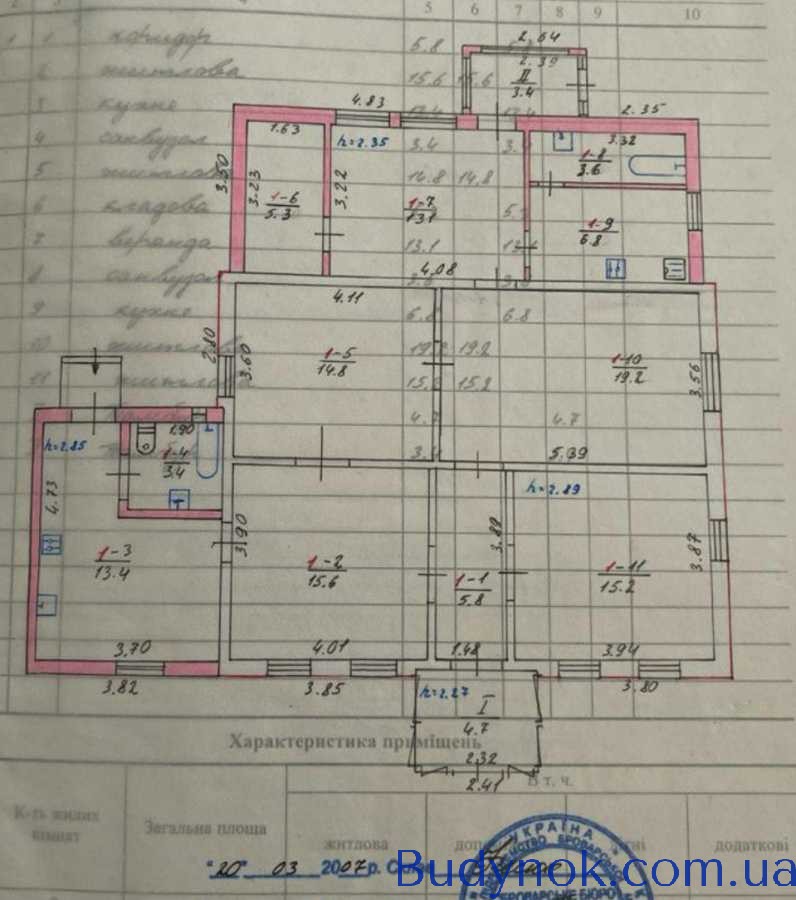 5 6 7 8 9 10
1 1 коридор 5.8
2 житлова 15.6 15.6
3 кухня 13.4 13.4
4 санвузол 3.4 3.4
5 житлова 14.8 14.8
6 кладова
7 веранда 13.1
8 санвузол
9 кухня 6.8 6.8
10 житлова 19.2 19.2
11 житлова 15.2 15.2
4.7 4.7
2.64
2.39
II
3.4
4.83
2.35
1.63
h=2.35
3.32
1-8
3.6
3.50
3.23
3.22
1-6
5.3
1-7
13.1
1-9
6.8
4.08
4.11
2.80
3.60
1-5
14.8
1-10
19.2
3.56
5.39
1.90
h=2.85
1-4
3.4
h=2.89
4.73
3.90
3.89
3.87
1-3
13.4
1-2
15.6
1-1
5.8
1-11
15.2
3.70
4.01
1.48
3.94
3.82
3.85
3.80
h=2.27
I
4.7
2.32
2.41
Характеристика приміщень
В т. ч.
К-ть жилих
кімнат
Загальна площа
житлова
додаткові
"20" 03 2007р.
УКРАЇНА
БРОВАРСЬКЕ БЮРО
Budynok.com.ua